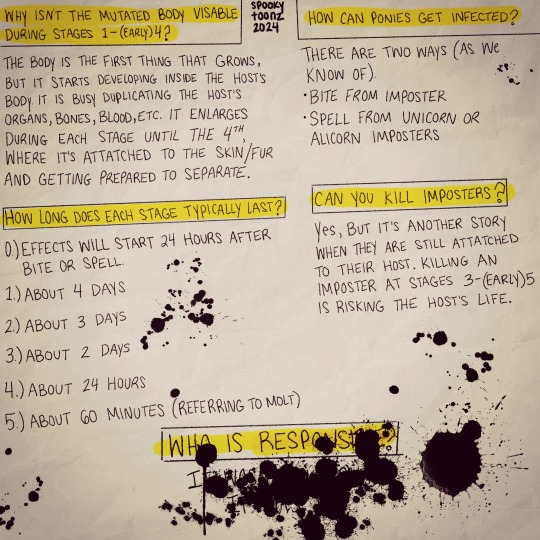 WHY ISN'T THE MUTATED BODY VISABLE
DURING STAGES 1-(EARLY)4?
THE BODY IS THE FIRST THING THAT GROWS,
BUT IT STARTS DEVELOPING INSIDE THE HOST'S
BODY. IT IS BUSY DUPLICATING THE HOST'S
ORGANS, BONES, BLOOD, ETC. IT ENLARGES
DURING EACH STAGE UNTIL THE 4TH,
WHERE IT'S ATTATCHED TO THE SKIN/FUR
AND GETTING PREPARED TO SEPARATE.
HOW LONG DOES EACH STAGE TYPICALLY LAST?
0.) EFFECTS WILL START 24 HOURS AFTER
BITE OR SPELL.
1.) ABOUT 4 DAYS
2.) ABOUT 3 DAYS
3.) ABOUT 2 DAYS
4.) ABOUT 24 HOURS
5.) ABOUT 60 MINUTES (REFERRING TO MOLT)
SPOOKY
TOONZ
2024
HOW CAN PONIES GET INFECTED?
THERE ARE TWO WAYS (AS WE
KNOW OF).
• BITE FROM IMPOSTER
• SPELL FROM UNICORN OR
ALICORN IMPOSTERS
CAN YOU KILL IMPOSTERS?
YES, BUT IT'S ANOTHER STORY
WHEN THEY ARE STILL ATTATCHED
TO THEIR HOST. KILLING AN
IMPOSTER AT STAGES 3-(EARLY)5
IS RISKING THE HOST'S LIFE.
WHO IS